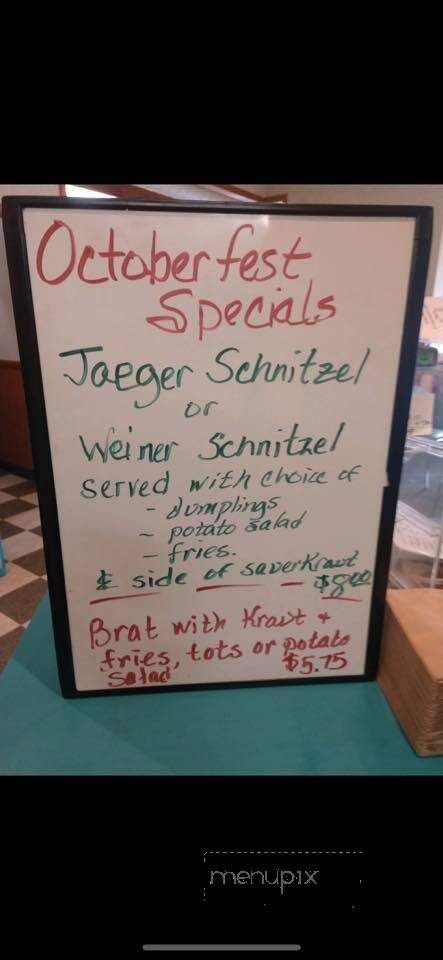 Octoberfest
Specials
Jaeger Schnitzel
or
Weiner Schnitzel
served with choice of
- dumplings
- potato salad
- fries.
& side of sauerKraut
$8.00
Brat with Kraut +
fries, tots or potato
salad $5.75
menupix